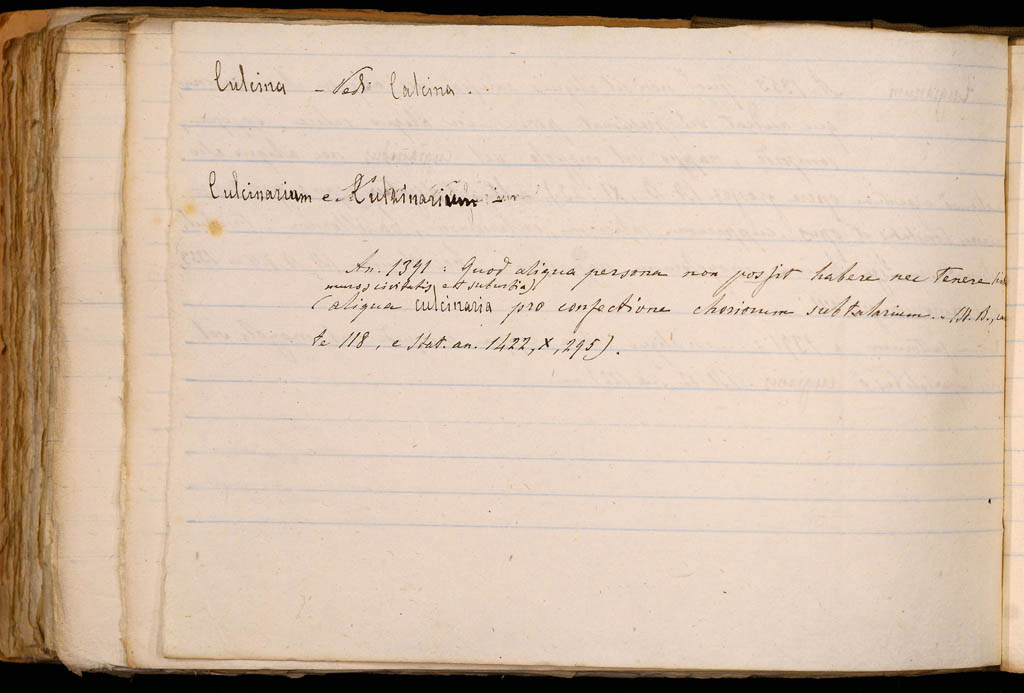 Culcina - Vedi Calcina.
Culcinarium e Kulzinarium
An. 1391: Quod aliqua persona non possit habere nec tenere
muros civitatis et suburbia)
(aliqua culcinaria pro confectione choriorum subtalarium.. (H. B., car
te 118, e Stat. an. 1422, X, 295).